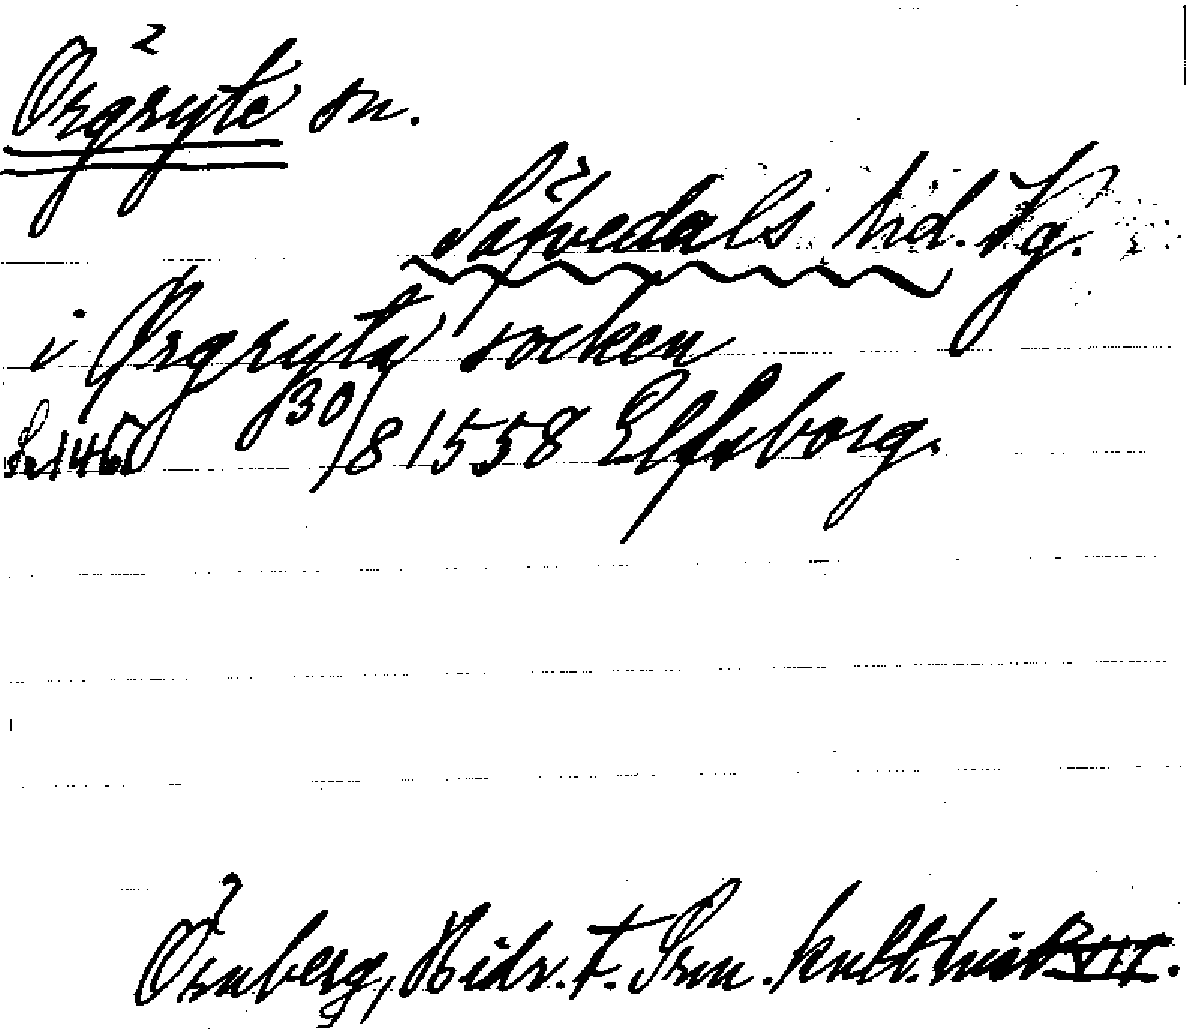 Örgryte sn.
Säfvedals hd. Vg.
i Ørgryta socken
S. 146 30/8 1558 Elfsborg.
Örnberg, Bidr. t. Svn. kult. hist.